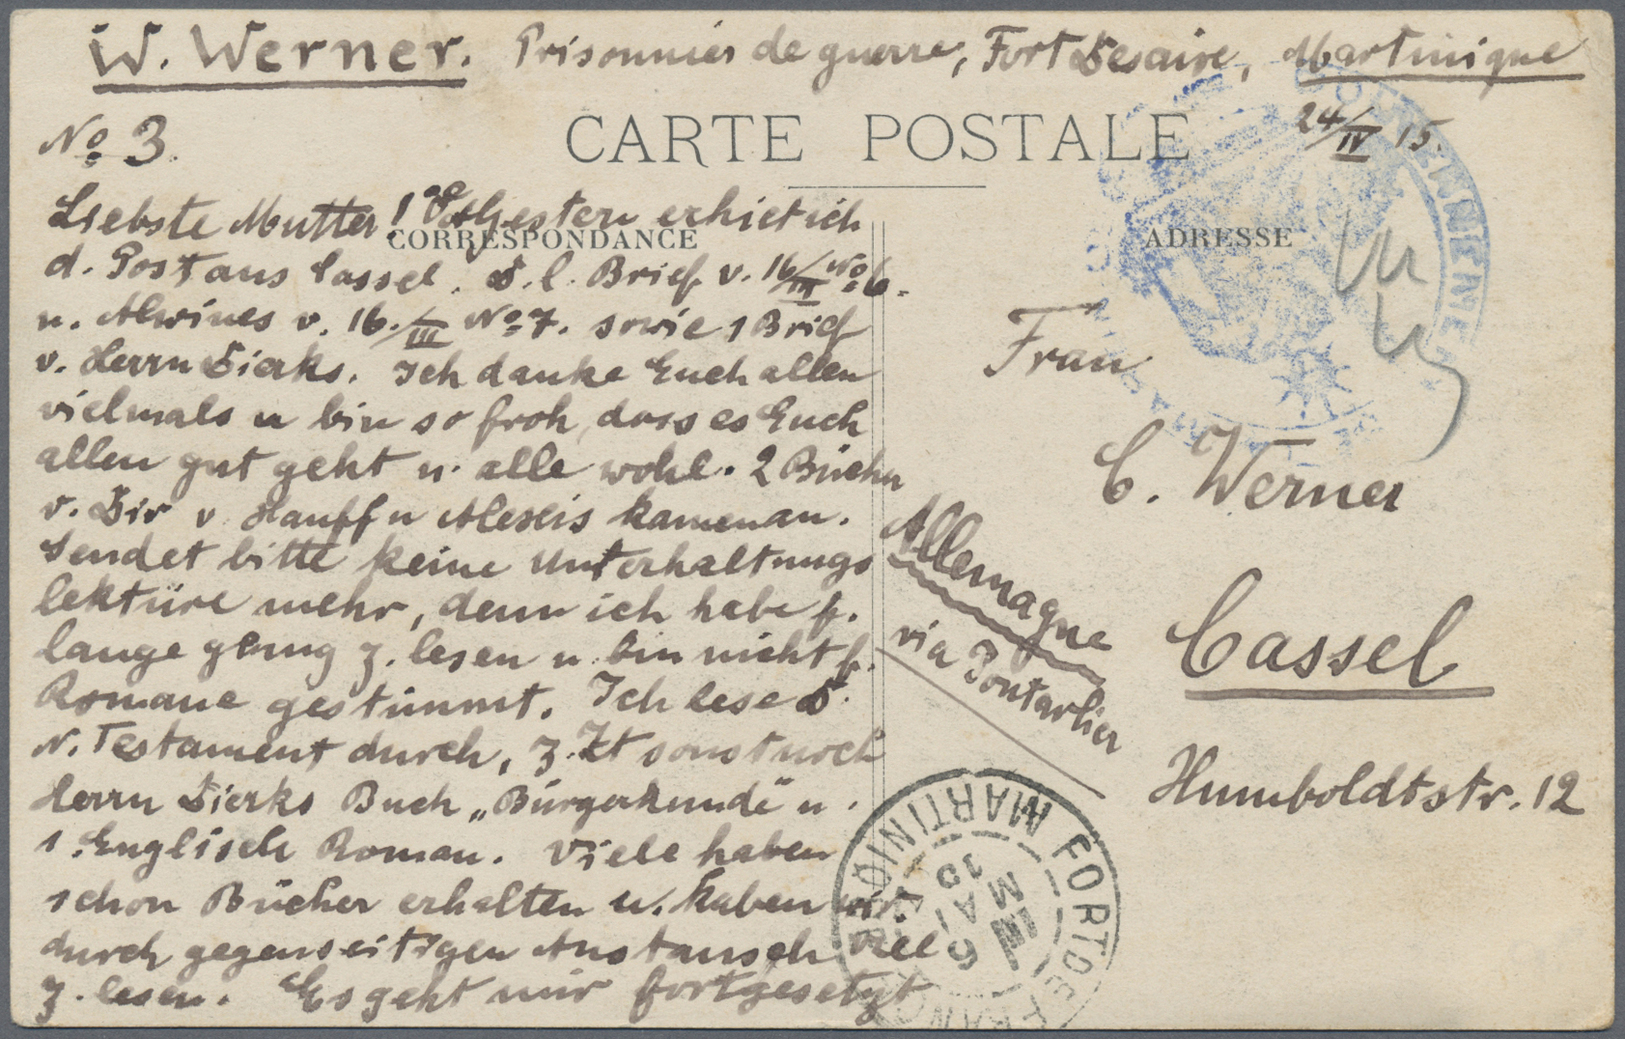 W. Werner. Prisonnier de guerre, Fort Desaire, Martinique
24/IV 15.
No 3.
CARTE POSTALE
CORRESPONDANCE
ADRESSE
Liebste Mutter! Gestern erhielt ich
d. Post aus Cassel. D. l. Brief v. 16/III No 6.
u. Alwines v. 16./III No 7. sowie 1 Brief
v. Herrn Dierks. Ich danke Euch allen
vielmals u bin so froh, dass es Euch
allen gut geht u. alle wohl. 2 Bücher
v. Dir v. Hauff u Alexis kamen an.
Sendet bitte keine Unterhaltungs
lektüre mehr, denn ich habe f.
lange genug z. lesen u. bin nicht f.
Romane gestimmt. Ich lese d.
N. Testament durch, z. Zt sonst noch
Herrn Dierks Buch „Bürgerkunde" u.
1 Englisch Roman. Viele haben
schon Bücher erhalten u. haben wir
durch gegenseitigen Austausch viel
z. lesen. Es geht mir fortgesetzt
Frau
C. Werner
Allemagne
via Pontarlier
Cassel
Humboldtstr. 12
FORT DE FRANCE
MARTINIQUE
6
MAI
15